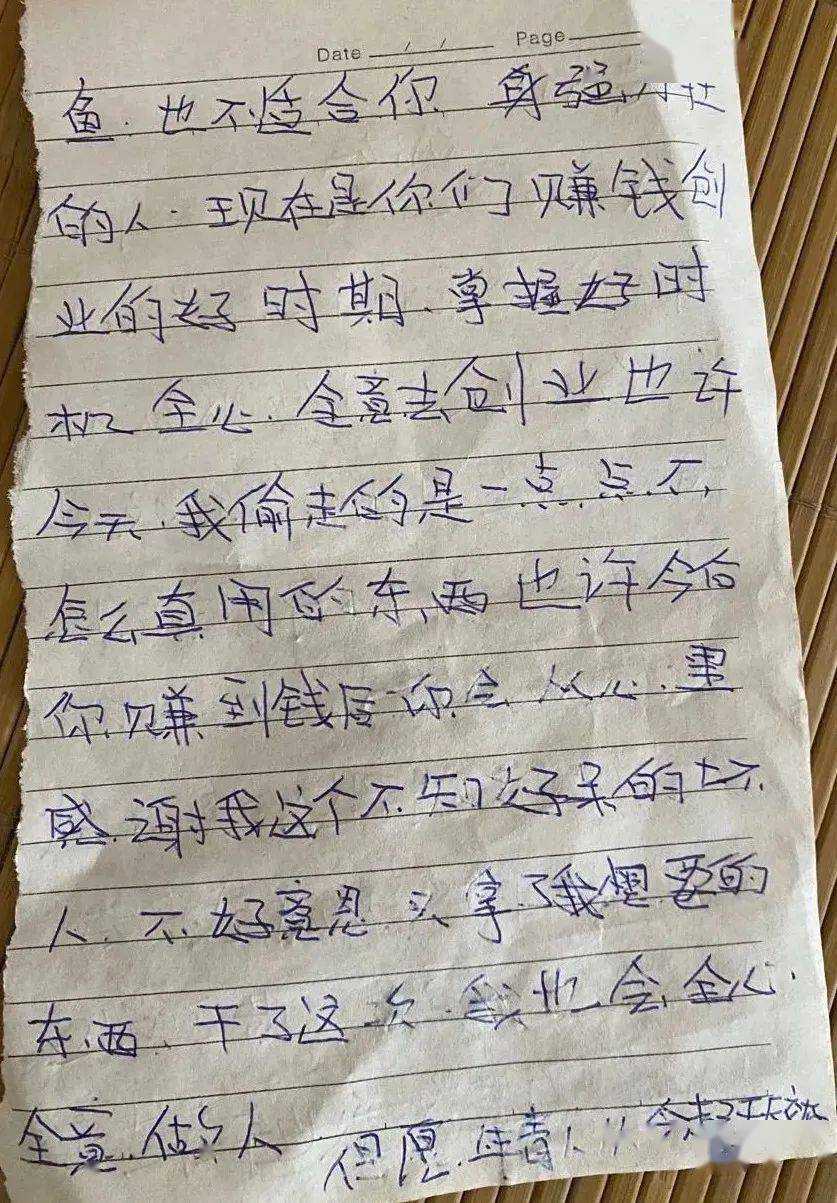 Date / / Page
鱼.也不适合你 身强
的人.现在是你们赚钱创
业的好时期.掌握好时
机 全心.全意去创业也许
今天.我偷走的是一点点不
怎么真用的东西也许今后
你赚到钱后你会从心里
感谢我这个不知好呆的坏
人.不好意思又拿了我想要的
东西.干了这次我也会全心.
全意做好人 但愿.年青人